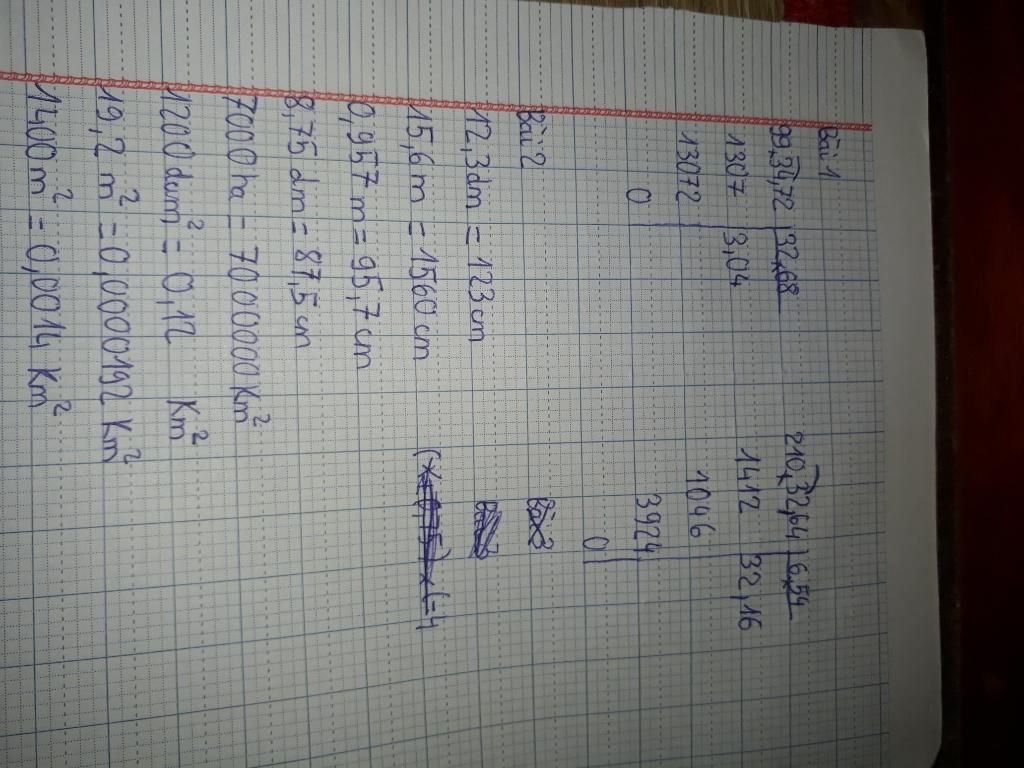 Bài 1
99,34,72 | 32,68
1307 | 3,04
13072
0
210,32,64 | 6,54
1412 | 32,16
1046
3924
0
Bài 2
12,3dm = 123cm
15,6m = 1560cm
0,957m = 95,7cm
8,75dm = 87,5cm
7000ha = 70000000Km²
1200dam² = 0,12 Km²
19,2m² = 0,0000192 Km²
1400m² = 0,0014 Km²
Bài 3